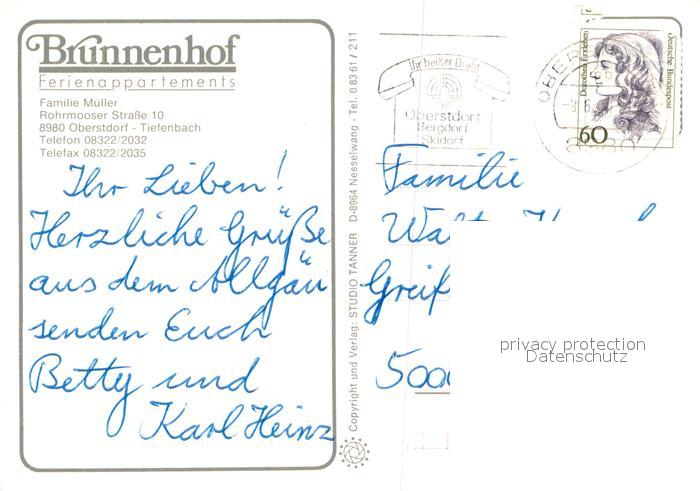 Brunnenhof
Ferienappartements
Familie Müller
Rohrmooser Straße 10
8980 Oberstdorf - Tiefenbach
Telefon 08322/2032
Telefax 08322/2035
Ihr Lieben!
Herzliche Grüße
aus dem Allgäu
senden Euch
Betty und
Karl Heinz
Copyright und Verlag: STUDIO TANNER D-8964 Nesselwang · Tel. 0 83 61 / 211
Ihr heißer Draht
Oberstdorf
Bergdorf
Skidorf
Dorothea Erxleben
Deutsche Bundespost
60
Familie
5000
privacy protection
Datenschutz